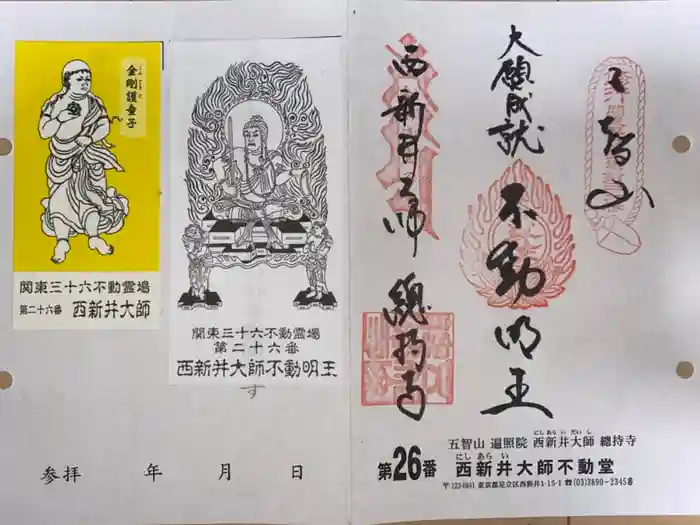 金剛護童子
関東三十六不動霊場
第二十六番 西新井大師
関東三十六不動霊場
第二十六番
西新井大師不動明王
す
参拝 年 月 日
五智山
大願成就
不動明王
西新井大師 總持寺
五智山 遍照院 西新井大師 總持寺
にしあらいだいし
第26番 西新井大師不動堂
にしあらい
〒123-0841 東京都足立区西新井1-15-1 ☎(03)3890-2345番